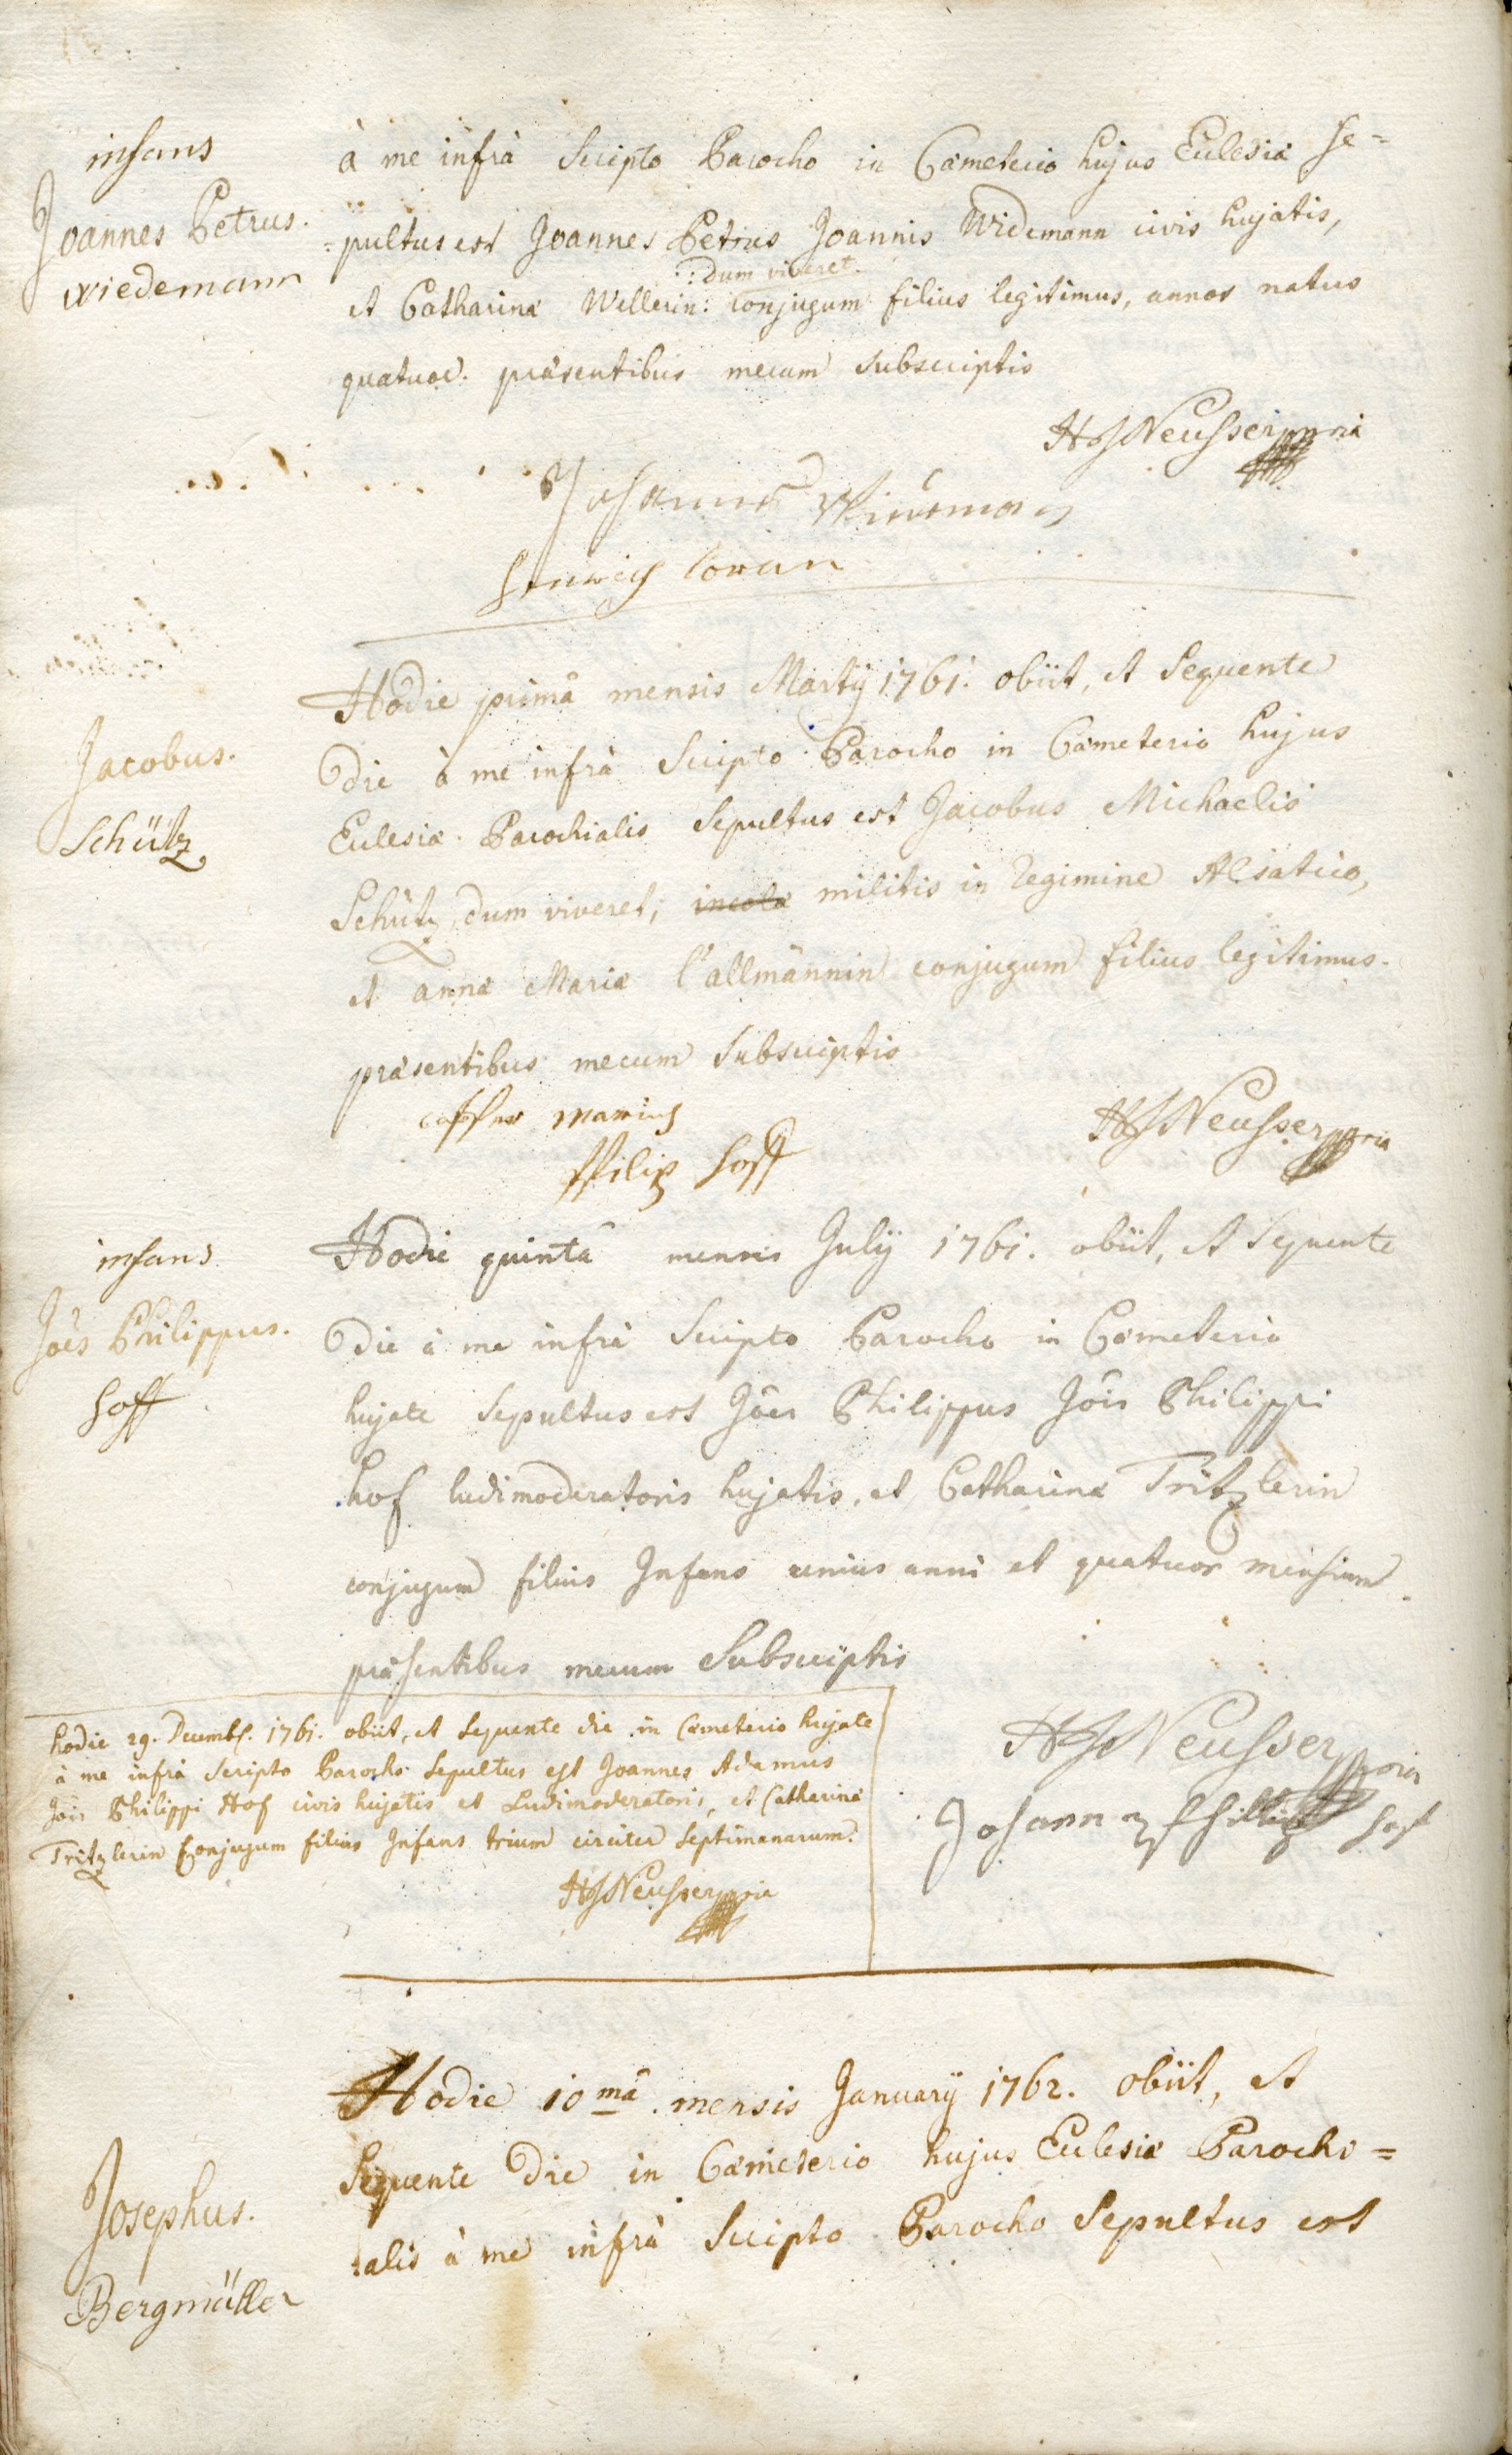 infans
Joannes Petrus.
wiedemann
à me infrà Scripto Parocho in Cœmeterio hujus Ecclesiæ se=
=pultus est Joannes Petrus Joannis Widemann civis hujatis,
:dum viveret.
et Catharinæ Wellerin: conjugum filius legitimus, annos natus
quatuor. præsentibus mecum subscriptis
HJNeusser mpria
Johannes Widemann
Henrich
Jacobus.
Schütz
Hodie primâ mensis Martij 1761. obiit, et Sequente
die à me infrà Scripto Parocho in Cœmeterio hujus
Ecclesiæ Parochialis Sepultus est Jacobus Michaelis
Schütz, dum viveret; incolæ militis in Regimine Alsatico,
et annæ Mariæ l'allmännin conjugum filius legitimus.
præsentibus mecum Subscriptis
HJNeusser mpria
Philip Hoff
infans
Jôes Philippus.
Hoff
Hodie quintâ mensis Julij 1761. obiit, et Sequente
die à me infrà Scripto Parocho in Cœmeterio
hujate Sepultus est Jôes Philippus Jôis Philippi
hof ludimoderatoris hujatis, et Catharinæ Tritzlerin
conjugum filius Infans unius anni et quatuor mensium.
præsentibus mecum Subscriptis
HJNeusser mpria
Johann Phillip Hoff
hodie 29. Decembr. 1761. obiit, et Sequente die in Cœmeterio hujate
à me infrà Scripto Parocho Sepultus est Joannes Adamus
Jôis Philippi Hof civis hujatis et Ludimoderatoris, et Catharinæ
Tritzlerin Conjugum filius Infans trium circiter Septimanarum.
HJNeusser mpria
Josephus.
Bergmüller
Hodie 10mâ mensis Januarij 1762. obiit, et
Sequente die in Cœmeterio hujus Ecclesiæ Parochi=
=alis à me infrà Scripto Parocho Sepultus est